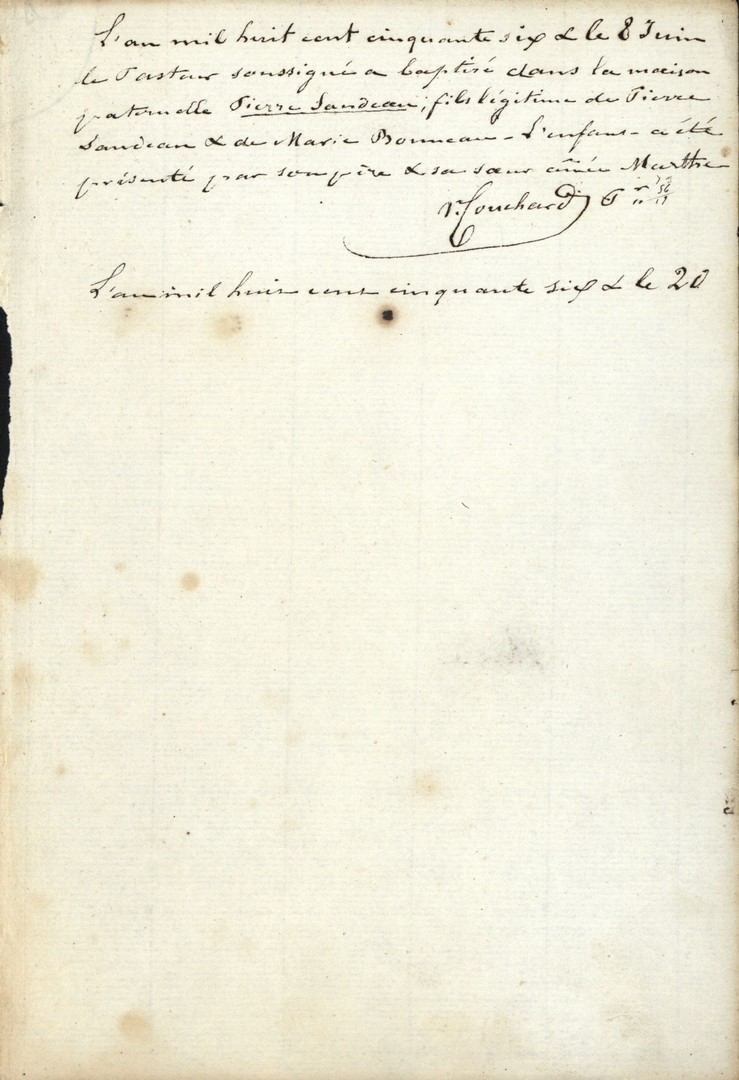 L'an mil huit cent cinquante six & le 8 Juin
le Pasteur soussigné a baptisé dans la maison
paternelle Pierre Landeau, fils légitime de Pierre
Landeau & de Marie Bonneau - L'enfant a été
présenté par son père & sa sœur aînée Marthe
Couchard P
L'an mil huit cent cinquante six & le 20